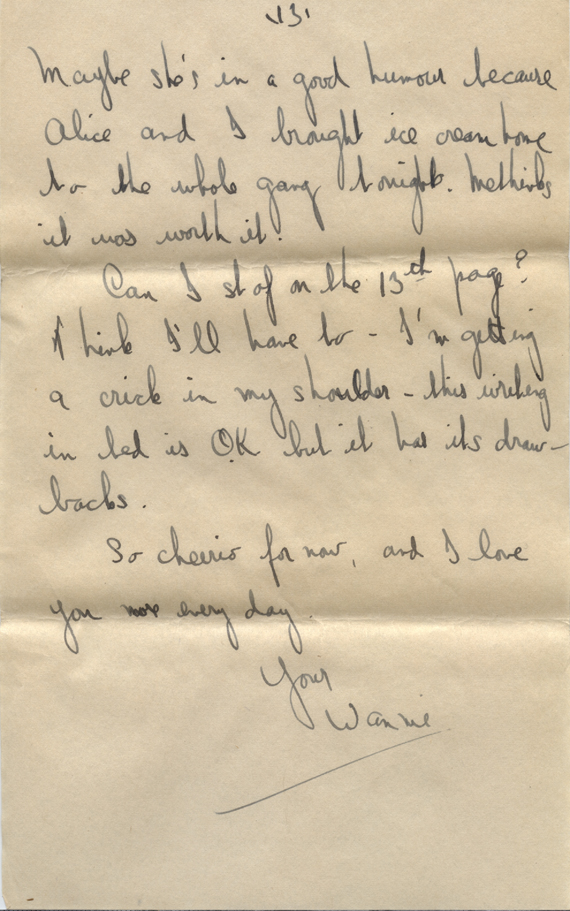 13
Maybe she's in a good humour because
Alice and I brought ice cream home
to the whole gang tonight. Methinks
it was worth it.
Can I stop on the 13th page?
I think I'll have to - I'm getting
a crick in my shoulder - this writing
in bed is OK but it has its draw-
backs.
So cheerio for now, and I love
you more every day.
Your
Wannie